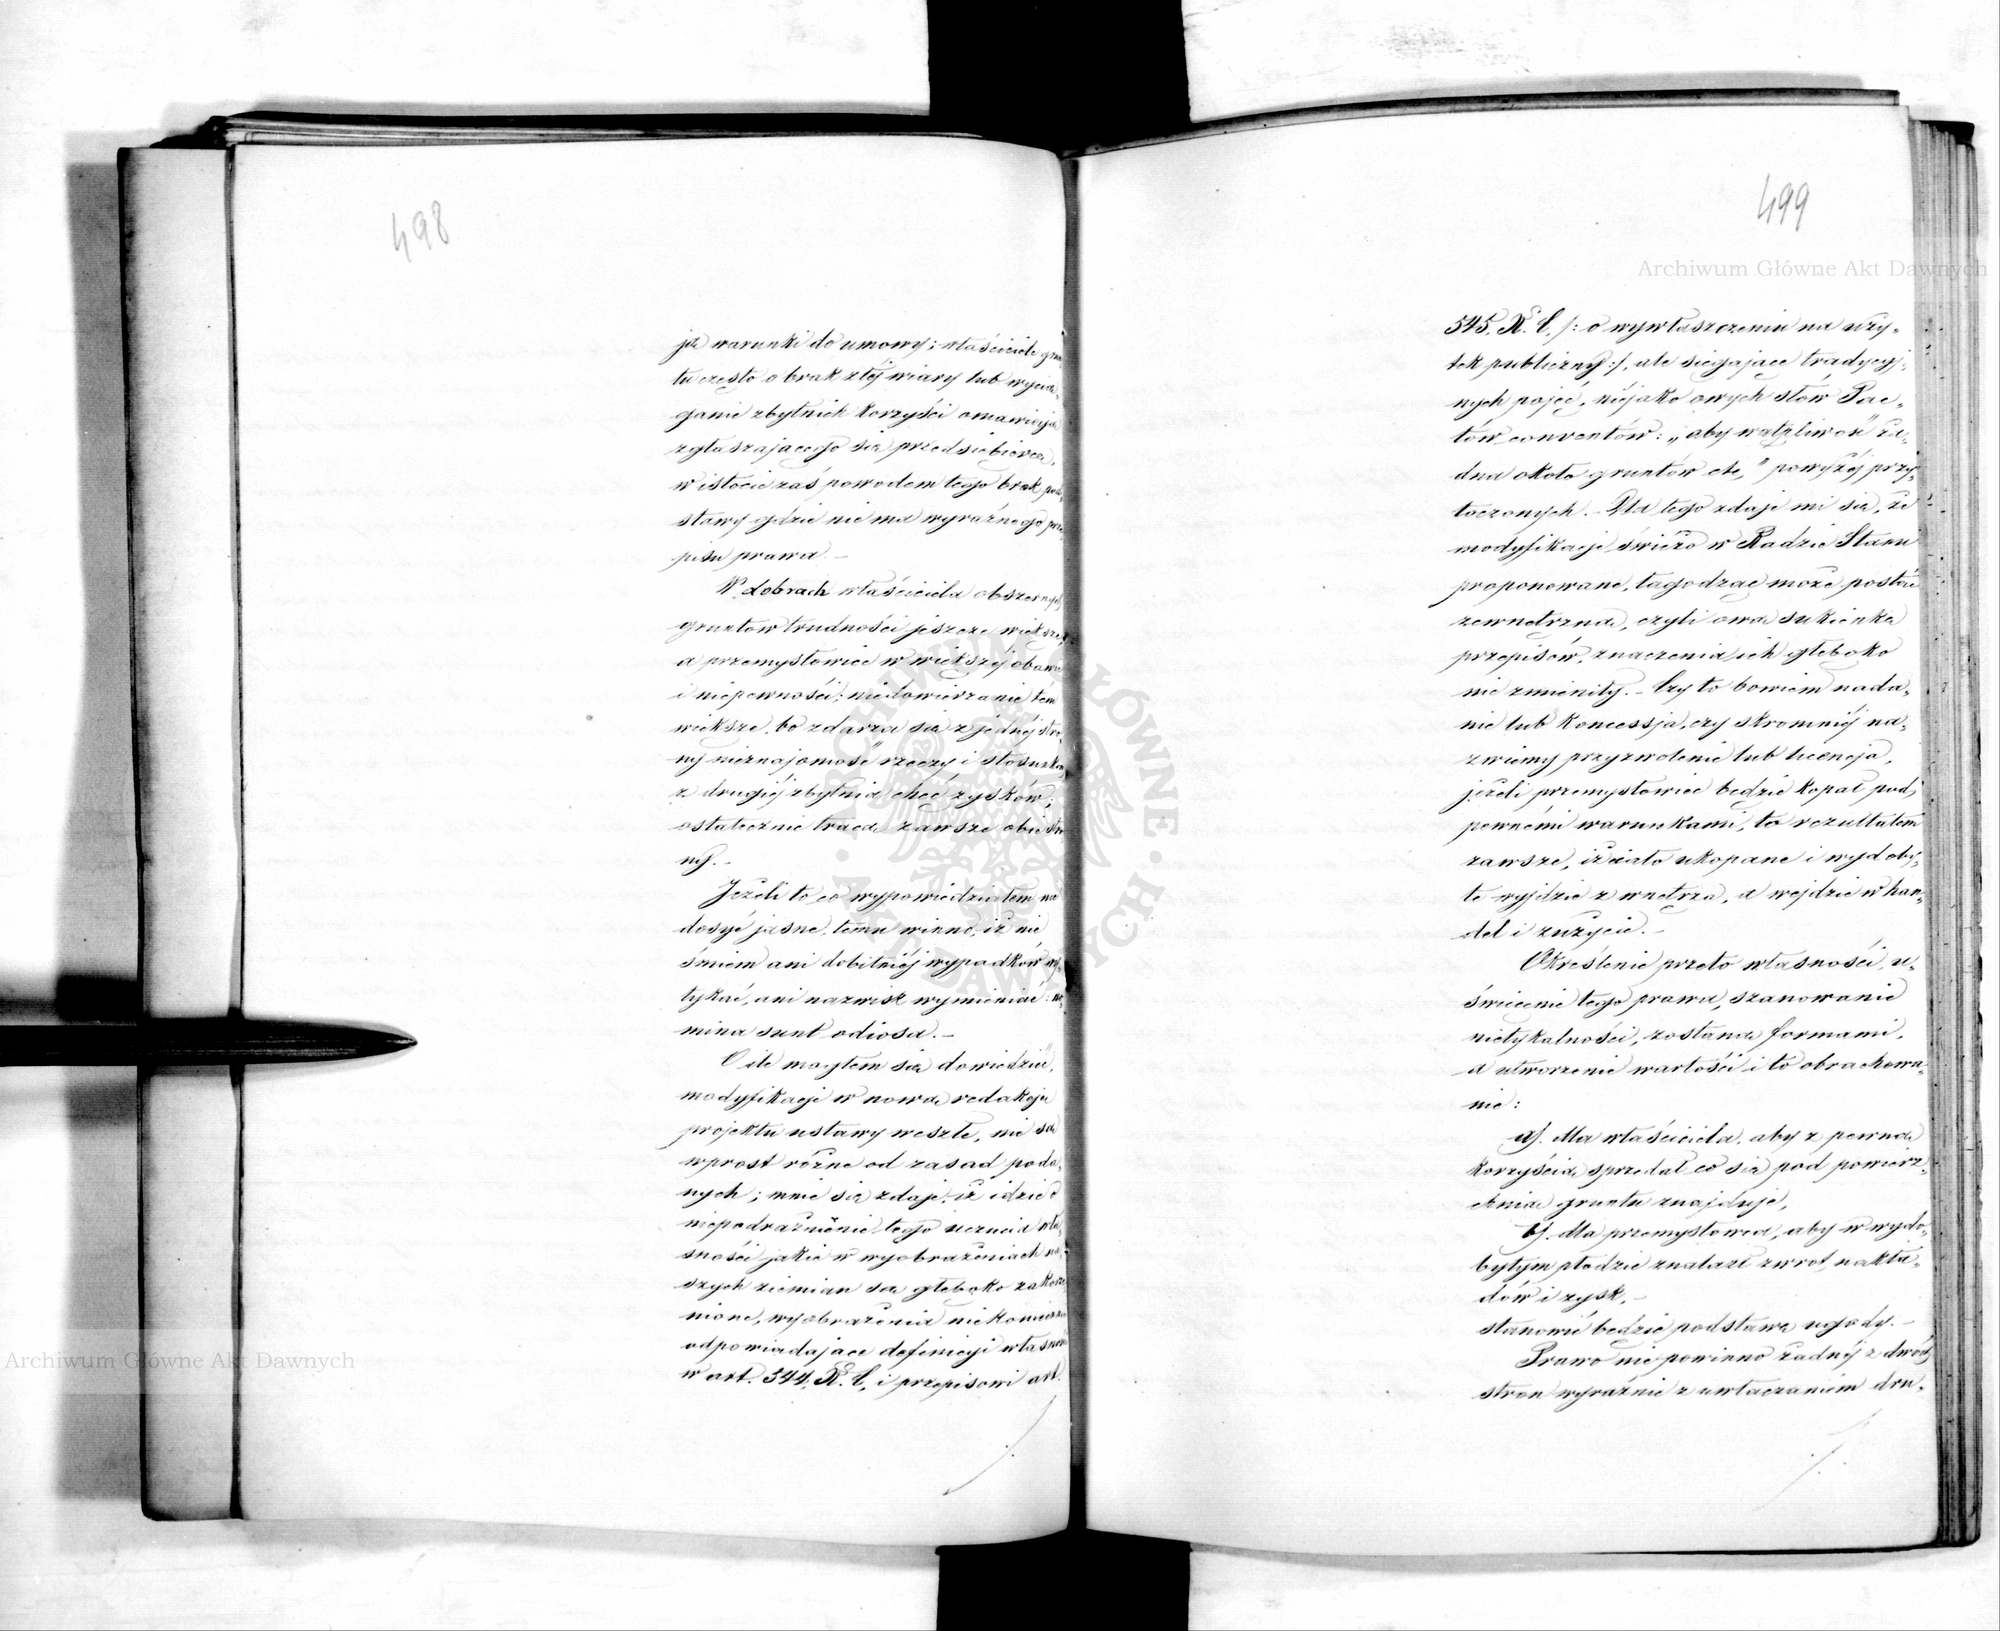 498
ją warunki do umowy; właściciele grun
tu często o brak złéj wiary lub wycią„
ganie zbytnich korzyści omawiają
zgłaszającego się przedsiębiercę,
w istocie zaś powodem tego brak pod„
stawy gdzie nie ma wyraźnego prze
pisu prawa. –
W dobrach właściciela obszernych
gruntów trudności jeszcze większe,
a przemysłowiec w większéj obawie
i niepewności; niedowierzanie tém
większe, bo zdarza się z jednéj stro„
ny nieznajomość rzeczy i stosunków
z drugiéj zbytnia chęć zysków;
ostatecznie tracą zawsze obie stro
ny. –
Jeżeli to co wypowiedziałem nie
dosyć jasne, temu winno, iż nie
śmiem ani dobitniéj wypadków wy„
tykać, ani nazwisk wymieniać: no„
mina sunt odiosa. –
O ile mogłem się dowiedzieć,
modyfikacje w nową redakcją
projektu ustawy weszłe, nie są
wprost różne od zasad poda„
nych; mnie się zdaje, iż idzie o
niepodrażnienie tego uczucia wła„
sności jakie w wyobrażeniach na„
szych ziemian są głęboko zakorze
nione, wyobrażenia niekoniecznie
odpowiadające definicyi własności
w art. 544. K. C. i przepisowi art.
499
Archiwum Główne Akt Dawnych
545. K. C. /: o wywłaszczeniu na uży„
tek publiczny :/, ale sięgające tradycyj„
nych pojęć, niejako owych słów Pac„
tów conventów: „aby wątpliwość ża„
dna około gruntów etc." powyżéj przy„
toczonych. – Dla tego zdaje mi się, że
modyfikacje świeżo w Radzie Stanu
proponowane, łagodząc może postać
zewnętrzną, czyli ową sukienkę
przepisów, znaczenia ich głęboko
nie zmieniły. – Czy to bowiem nada„
nie lub koncessja, czy skromniéj na„
zwiemy przyzwolenie lub licencja,
jeżeli przemysłowiec będzie kopał pod
pewnémi warunkami, to rezultatem
zawsze, iż ciało ukopane i wydoby„
te wyjdzie z wnętrza, a wejdzie w han„
del i zużycie. –
Określenie przeto własności, u„
święcenie tego prawa, szanowanie
nietykalności, zostaną formami,
a utworzenie wartości i to obrachowa„
nie:
a). dla właściciela, aby z pewną
korzyścią sprzedał co się pod powierz„
chnią gruntu znajduje,
b). dla przemysłowca, aby w wydo„
bytym płodzie znalazł zwrot nakła„
dów i zysk, –
stanowić będzie podstawę ugody. –
Prawo nie powinno żadnéj z dwóch
stron wyraźnie z uwłaczaniem dru„
Archiwum Główne Akt Dawnych
ARCHIWUM GŁÓWNE AKT DAWNYCH